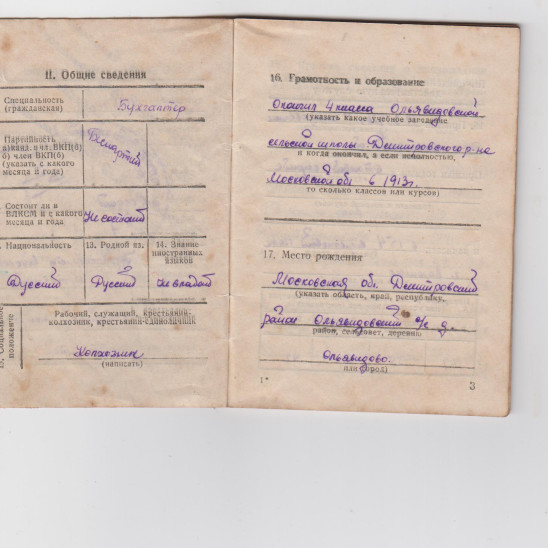 II. Общие сведения
Специальность
(гражданская)
Бухгалтер
Партийность
канд. и чл. ВКП(б)
б) член ВКП(б)
(указать с какого
месяца и года)
Беспартий
Состоит ли в
ВЛКСМ и с какого
месяца и года
Не состоит
Национальность
13. Родной яз.
14. Знание
иностранных
языков
Русский
Русский
не владеет
15. Социальное
положение
Рабочий, служащий, крестьянин-
колхозник, крестьянин-единоличник
Колхозник
(написать)
16. Грамотность и образование
Окончил 4 класса Ольявидовской
(указать какое учебное заведение
сельской школы Дмитровского р-на
и когда окончил, а если неполностью,
Московской обл в 1913г.
то сколько классов или курсов)
17. Место рождения
Московская обл. Дмитровский
(указать область, край, республику,
район Ольявидовский с/с д.
район, сельсовет, деревню
Ольявидово.
или город)
1*
3